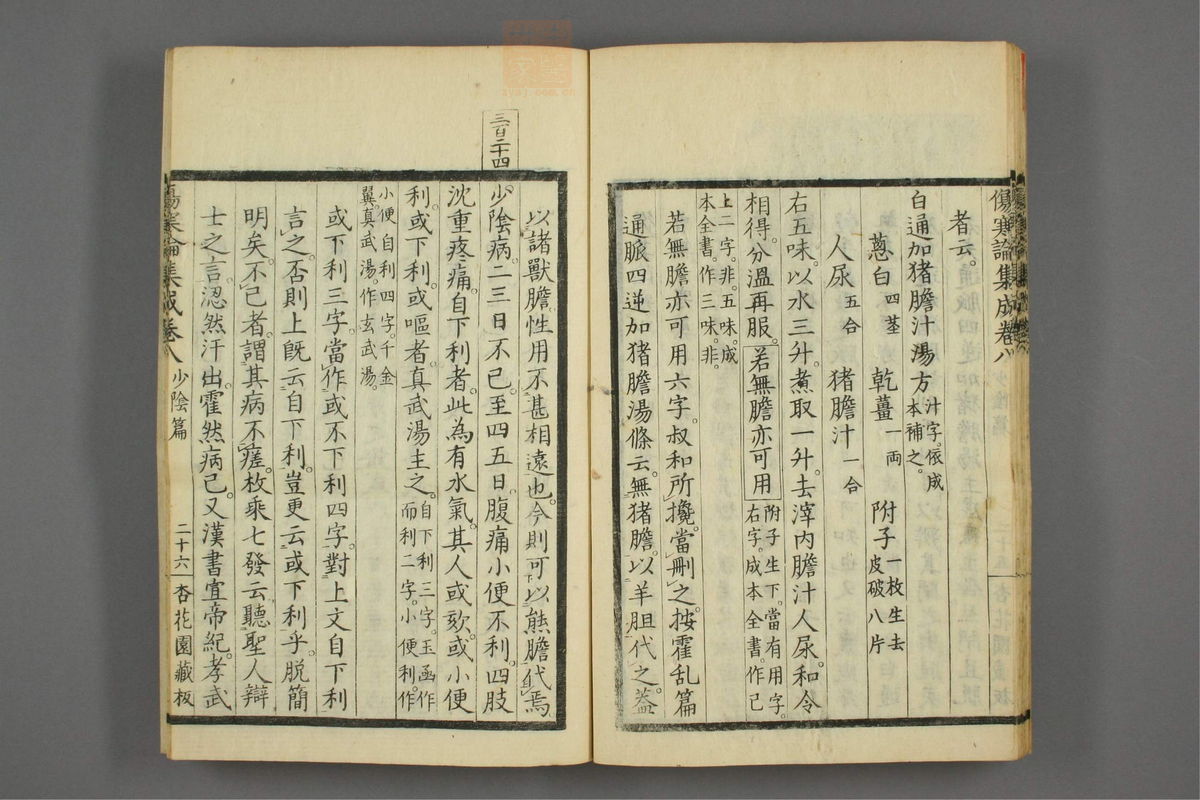 傷寒論集成卷八
者云。
白通加猪膽汁湯方 汁字。依成本補之。
葱白 四莖 乾薑 一兩 附子 一枚生去皮破八片
人尿 五合 猪膽汁 一合
右五味。以水三升。煮取一升。去滓內膽汁人尿。和令
相得。分溫再服。若無膽亦可用 附子生下。當有用字。右字。成本全書。作已
上二字。非。五味。成本全書。作三味。非。
若無膽亦可用六字。叔和所攙。當刪之。按霍乱篇
通脈四逆加猪膽湯條云。無猪膽。以羊胆代之。益
以諸獸膽。性用不甚相遠也。今則可以熊膽代焉
三百二十四
少陰病。二三日不已。至四五日。腹痛小便不利。四肢
沈重疼痛。自下利者。此為有水氣。其人或欬。或小便
利。或下利。或嘔者。真武湯主之。自下利三字。玉函作而利二字。小便利。作
小便自利四字。千金翼真武湯。作玄武湯。
或下利三字。當作或不下利四字。對上文自下利
言之。否則上既云自下利。豈更云或下利乎。脫簡
明矣。不已者。謂其病不瘥。枚乘七發云。聽聖人辯
士之言。涊然汗出。霍然病已。又漢書宣帝紀。孝武
傷寒論集成卷八 少陰篇 二十六 杏花園藏板